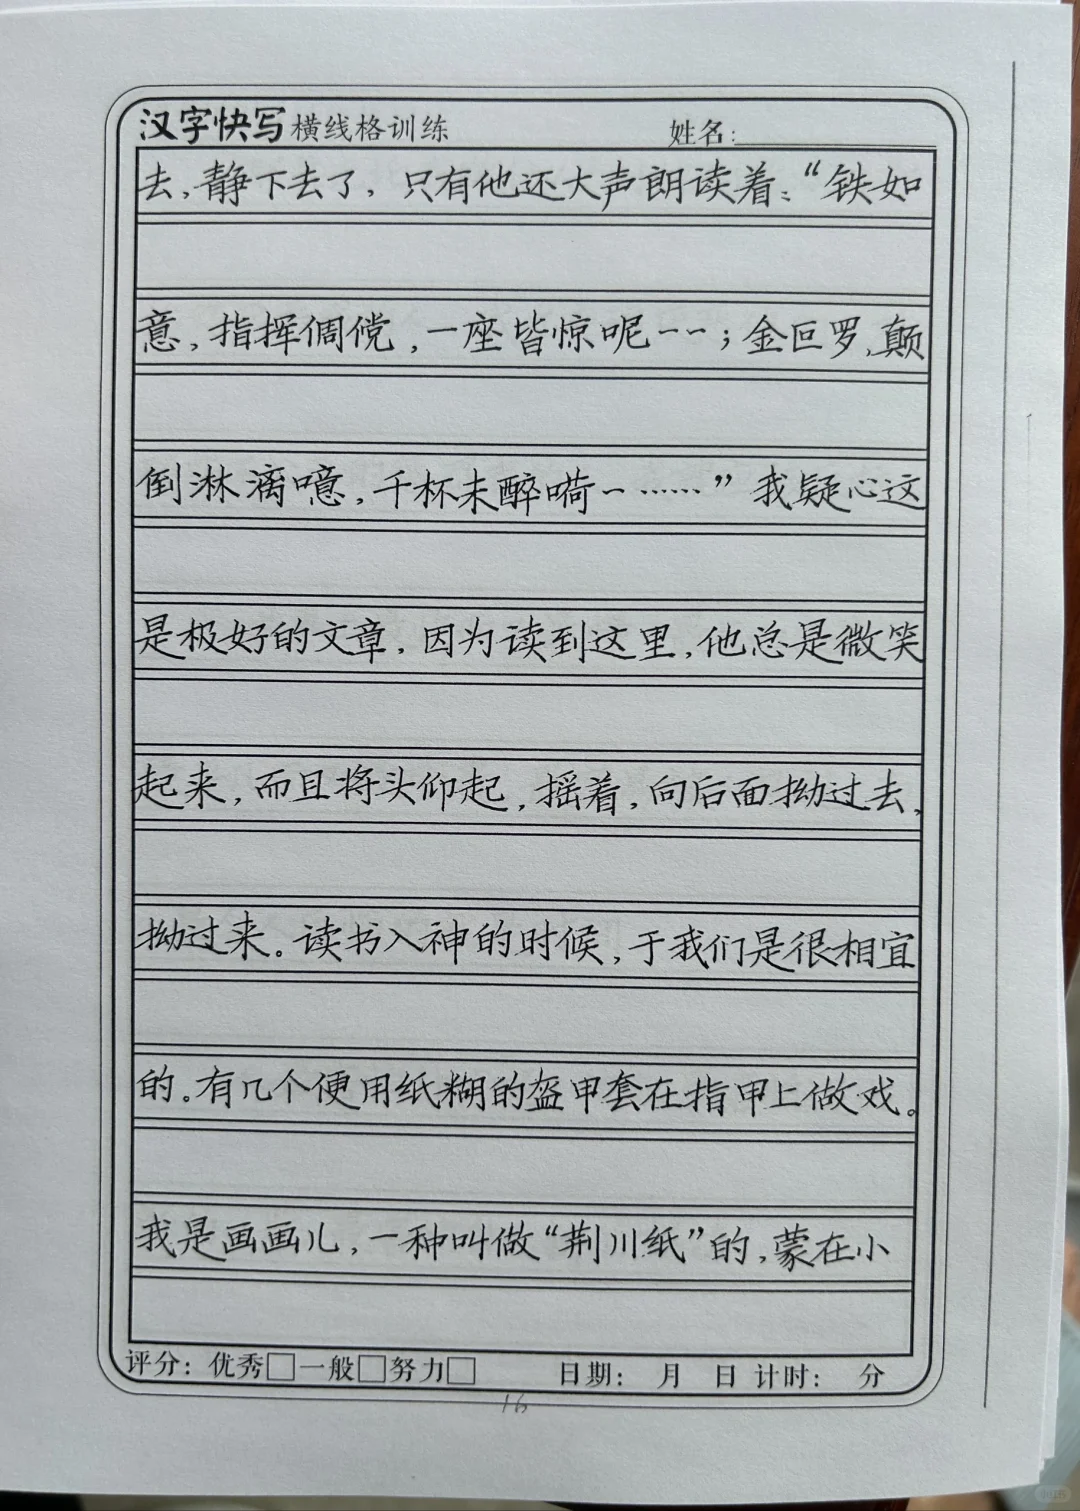 汉字快写横线格训练 姓名:
去,静下去了,只有他还大声朗读着:“铁如
意,指挥倜傥,一座皆惊呢~~;金叵罗,颠
倒淋漓噫,千杯未醉嗬~……”我疑心这
是极好的文章,因为读到这里,他总是微笑
起来,而且将头仰起,摇着,向后面拗过去,
拗过来。读书入神的时候,于我们是很相宜
的。有几个便用纸糊的盔甲套在指甲上做戏。
我是画画儿,一种叫做“荆川纸”的,蒙在小
评分:优秀□一般□努力□ 日期: 月 日 计时: 分
16